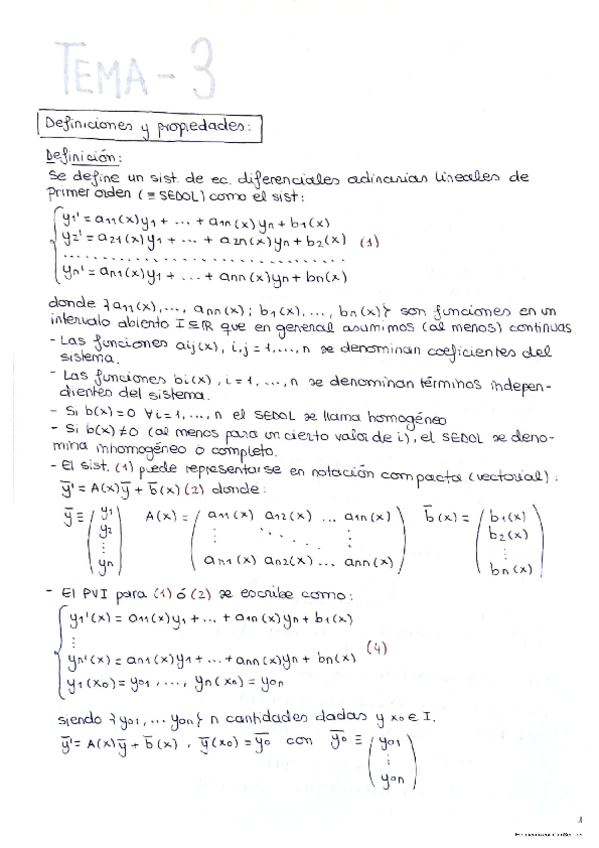 TEMA - 3
Definiciones y propiedades:
Definición:
Se define un sist. de ec. diferenciales odinarias lineales de
primer orden (≡ SEDOL) como el sist:
y1' = a11(x)y1 + ... + a1n(x)yn + b1(x)
y2' = a21(x)y1 + ... + a2n(x)yn + b2(x) (1)
.................................
yn' = an1(x)y1 + ... + ann(x)yn + bn(x)
donde {a11(x),..., ann(x); b1(x),..., bn(x)} son funciones en un
intervalo abierto I⊆R que en general asumimos (al menos) continuas
- Las funciones aij(x), i,j = 1,...,n se denominan coeficientes del
sistema.
- Las funciones bi(x), i = 1,...,n se denominan términos indepen-
dientes del sistema.
- Si b(x)=0 ∀i=1,...,n el SEDOL se llama homogéneo
- Si b(x)≠0 (al menos para un cierto valor de i), el SEDOL se deno-
mina inhomogéneo o completo.
- El sist. (1) puede representarse en notación compacta (vectorial):
ȳ' = A(x)ȳ + b̄(x) (2) donde:
ȳ ≡ ( y1 y2 ⋮ yn ) A(x) = ( a11(x) a12(x) ... a1n(x) ⋮ ⋱ ⋮ an1(x) an2(x) ... ann(x) ) b̄(x) = ( b1(x) b2(x) ⋮ bn(x) )
- El PVI para (1) ó (2) se escribe como:
y1'(x) = a11(x)y1 + ... + a1n(x)yn + b1(x)
⋮
yn'(x) = an1(x)y1 + ... + ann(x)yn + bn(x) (4)
y1(x0) = y01, ..., yn(x0) = y0n
siendo {y01, ... y0n} n cantidades dadas y x0 ∈ I.
ȳ' = A(x)ȳ + b̄(x), ȳ(x0) = ȳ0 con ȳ0 ≡ ( y01 ⋮ y0n )
1